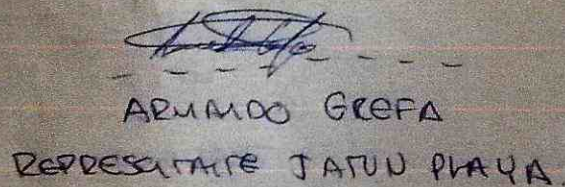 ARMANDO GREFA
REPRESENTANTE JATUN PLAYA.